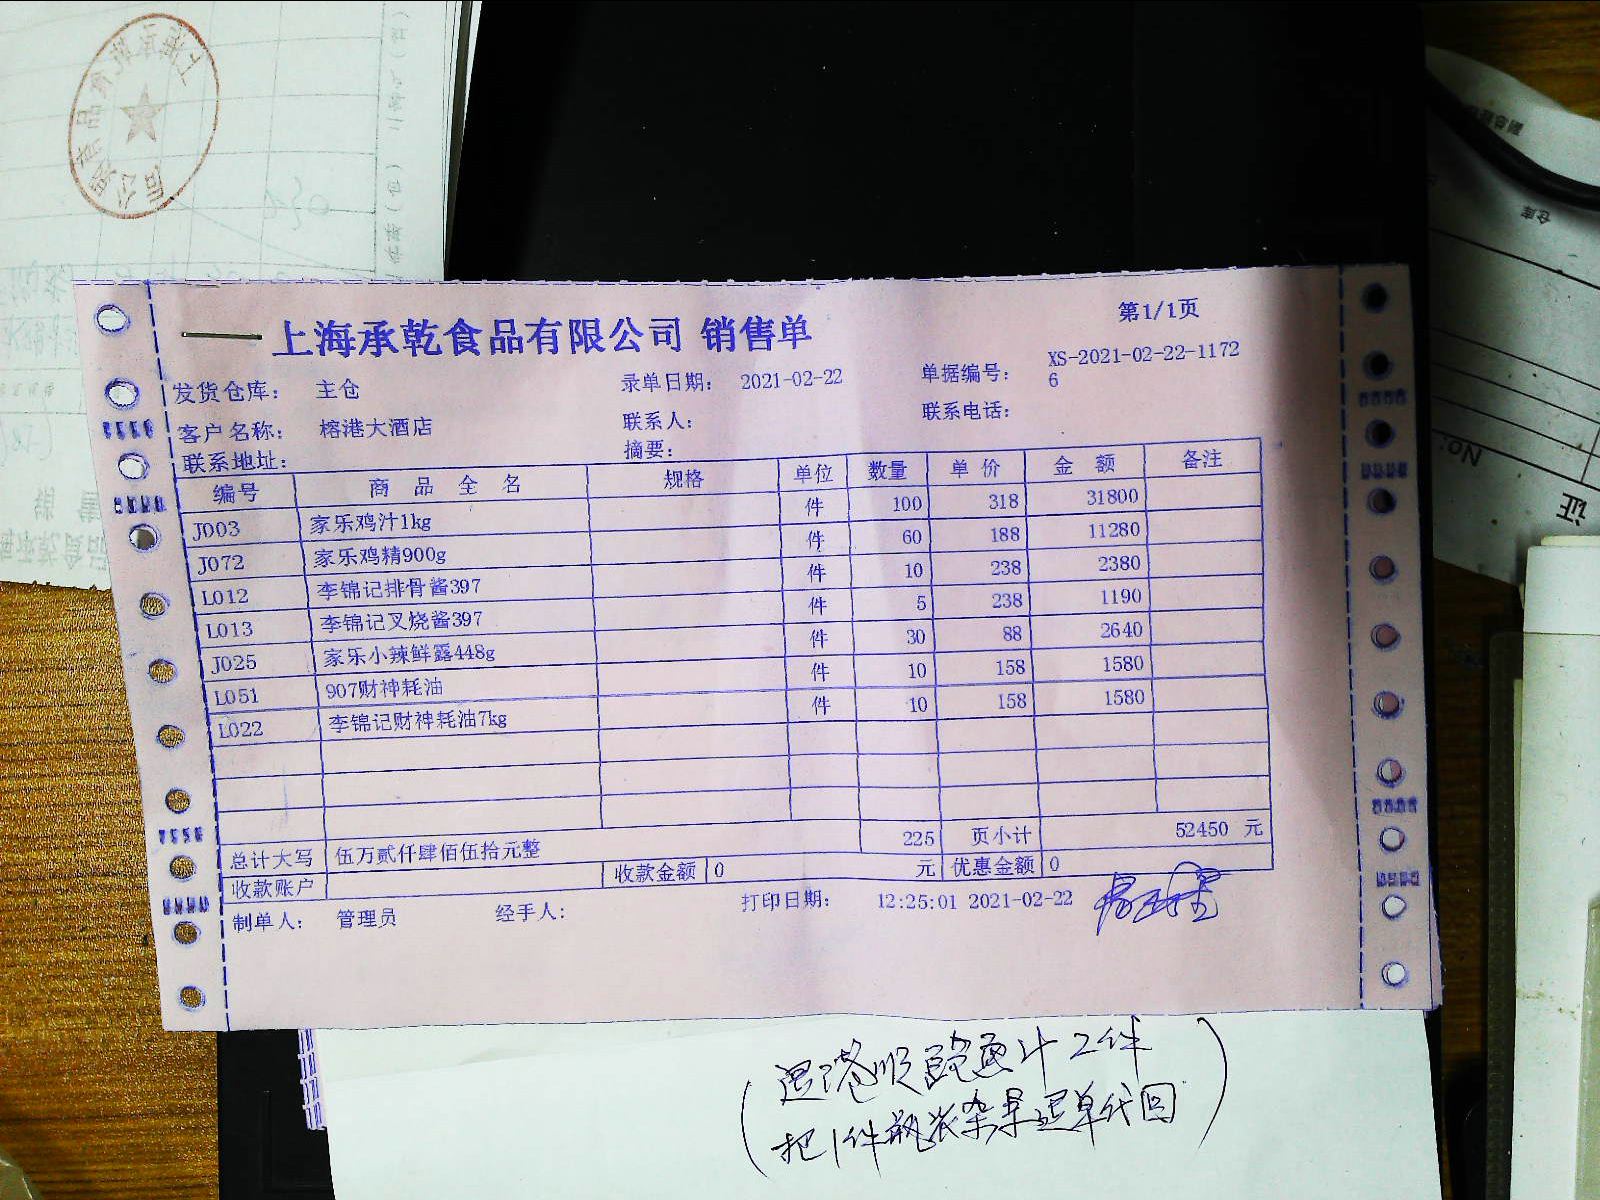 上海承乾食品有限公司 销售单
第1/1页
发货仓库: 主仓 录单日期: 2021-02-22 单据编号: XS-2021-02-22-1172
6
客户名称: 榕港大酒店 联系人: 联系电话:
联系地址: 摘要:
编号 商品全名 规格 单位 数量 单价 金额 备注
J003 家乐鸡汁1kg 件 100 318 31800
J072 家乐鸡精900g 件 60 188 11280
L012 李锦记排骨酱397 件 10 238 2380
L013 李锦记叉烧酱397 件 5 238 1190
J025 家乐小辣鲜露448g 件 30 88 2640
L051 907财神耗油 件 10 158 1580
L022 李锦记财神耗油7kg 件 10 158 1580
总计大写 伍万贰仟肆佰伍拾元整 225 页小计 52450 元
收款账户 收款金额 0 元 优惠金额 0
制单人: 管理员 经手人: 打印日期: 12:25:01 2021-02-22
(退港顺鲍鱼汁2件
把1件瓶装 退单代回)
上海承乾食品有限公司
仓库
No:
证